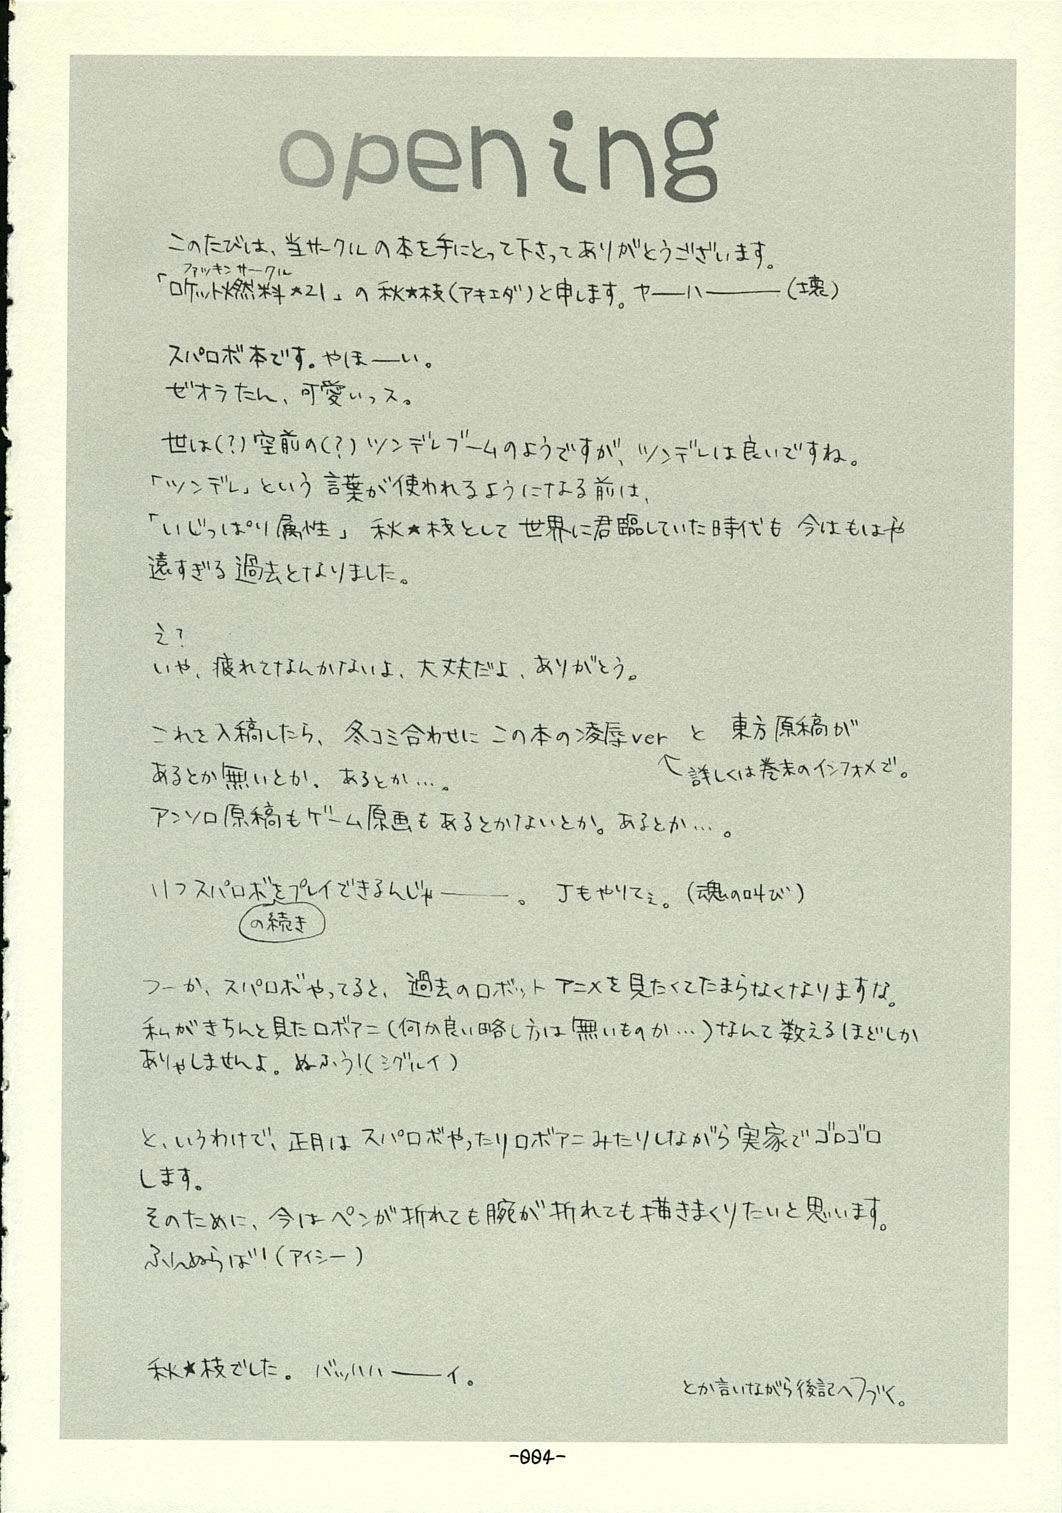 opening
このたびは、当サークルの本を手にとって下さってありがとうございます。
ファッキンサークル
「ロケット燃料★21」の秋★枝(アキエダ)と申します。ヤーハー(壊)
スパロボ本です。やほーい。
ゼオラたん、可愛いっス。
世は(?)空前の(?)ツンデレブームのようですが、ツンデレは良いですね。
「ツンデレ」という言葉が使われるようになる前は、
「いじっぱり属性」秋★枝として世界に君臨していた時代も今はもはや
遠すぎる過去となりました。
え?
いや、疲れてなんかないよ、大丈夫だよ、ありがとう。
これを入稿したら、冬コミ合わせにこの本の凌辱verと東方原稿が
あるとか無いとか、あるとか…。
↖詳しくは巻末のインフォメで。
アンソロ原稿もゲーム原画もあるとかないとか。あるとか…。
いつスパロボをプレイできるんじゃー。Jもやりてぇ。(魂の叫び)
の続き
つーか、スパロボやってると、過去のロボットアニメを見たくてたまらなくなりますな。
私がきちんと見たロボアニ(何か良い略し方は無いものか…)なんて数えるほどしか
ありゃしませんよ。ぬふぅ!(シグルイ)
と、いうわけで、正月はスパロボやったりロボアニみたりしながら実家でゴロゴロ
します。
そのために、今はペンが折れても腕が折れても描きまくりたいと思います。
ふんぬらば!!(アイシー)
秋★枝でした。バッハハーイ。
とか言いながら後記へつづく。
-004-